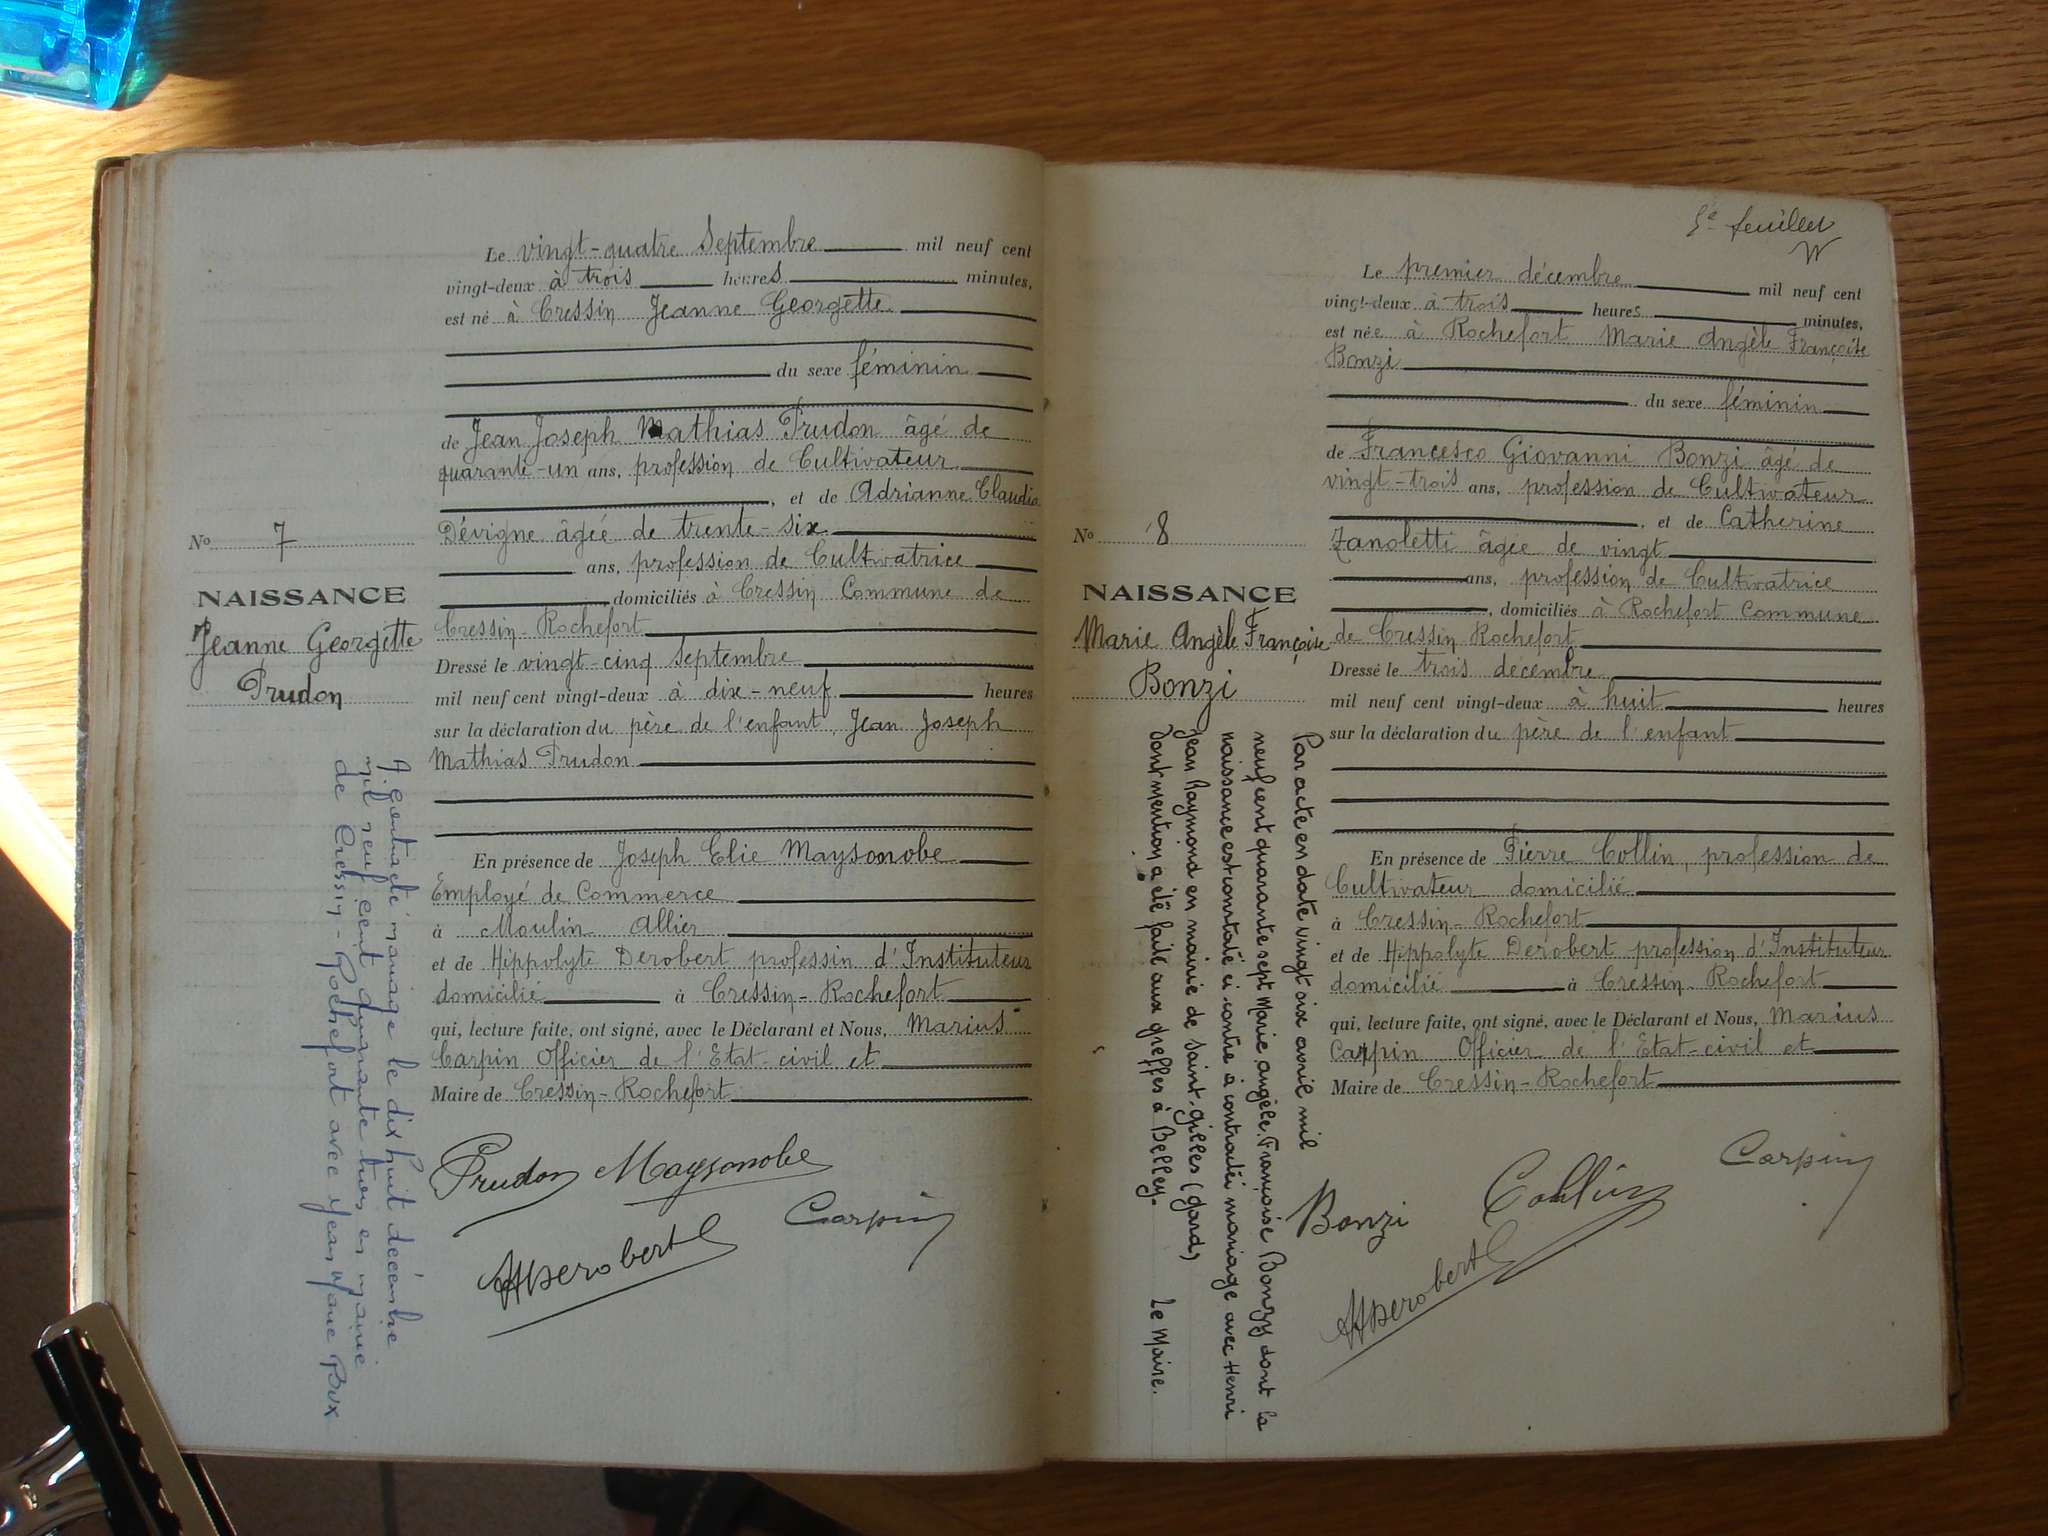 Le vingt-quatre Septembre mil neuf cent
vingt-deux à trois heures minutes,
est né à Cressin Jeanne Georgette
du sexe féminin
de Jean Joseph Mathias Prudon âgé de
quarante-un ans, profession de Cultivateur
, et de Adrianne Claudia
Dévigne âgée de trente-six
ans, profession de Cultivatrice
domiciliés à Cressin Commune de
Cressin-Rochefort
Dressé le vingt-cinq Septembre
mil neuf cent vingt-deux à dix-neuf heures
sur la déclaration du père de l'enfant, Jean Joseph
Mathias Prudon
En présence de Joseph Elie Maysonobe
Employé de Commerce
à Moulin Allier
et de Hippolyte Derobert professin d'Instituteur
domicilié à Cressin-Rochefort
qui, lecture faite, ont signé, avec le Déclarant et Nous, Marius
Carpin Officier de l'Etat-civil et
Maire de Cressin-Rochefort
Prudon Maysonobe
Carpin
HDerobert
No 7
NAISSANCE
Jeanne Georgette
Prudon
A contracté mariage le dix huit décembre
mil neuf cent quarante trois en mairie
de Cressin-Rochefort avec Jean Marie Bux
5e feuillet
Le premier décembre mil neuf cent
vingt-deux à trois heures minutes,
est née à Rochefort Marie Angèle Françoise
Bonzi
du sexe féminin
de Francesco Giovanni Bonzi âgé de
vingt-trois ans, profession de Cultivateur
, et de Catherine
Zanoletti âgée de vingt
ans, profession de Cultivatrice
, domiciliés à Rochefort Commune
de Cressin Rochefort
Dressé le trois décembre
mil neuf cent vingt-deux à huit heures
sur la déclaration du père de l'enfant
En présence de Pierre Collin, profession de
Cultivateur domicilié
à Cressin-Rochefort
et de Hippolyte Derobert profession d'Instituteur
domicilié à Cressin-Rochefort
qui, lecture faite, ont signé, avec le Déclarant et Nous, Marius
Carpin Officier de l'Etat-civil et
Maire de Cressin-Rochefort
Carpin
Bonzi Collin
HDerobert
No 8
NAISSANCE
Marie Angèle Françoise
Bonzi
Par acte en date vingt six avril mil
neuf cent quarante sept Marie angèle Françoise Bonzy dont la
naissance est constatée ci-contre à contracté mariage avec Henri
Jean Raymond en mairie de Saint-Gilles (Gard)
dont mention a été fait aux greffes à Belley. Le Maire.